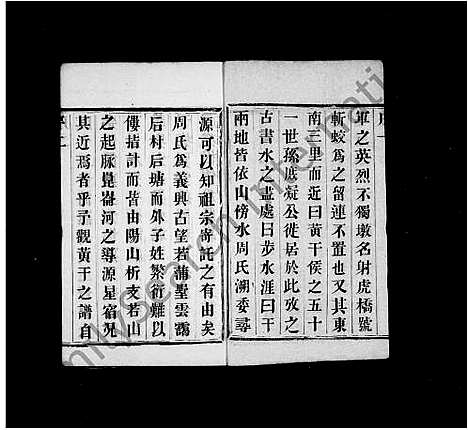 軍之英烈不獨墩名射虎橋號
斬蛟爲之留連不置也又其東
南三里而近曰黃干侯之五十
一世孫底凝公徙居於此攷之
古書水之盡處曰步水涯曰干
兩地皆依山傍水周氏溯委尋
源可以知祖宗寄託之有由矣
周氏爲義興古望若蒲墅雲靄
后村后塘而外子姓繁衍難以
僂指計而皆由陽山析支若山
之起脈崑崙河之導源星宿况
其近焉者乎予觀黃干之譜自
FamilySearch International